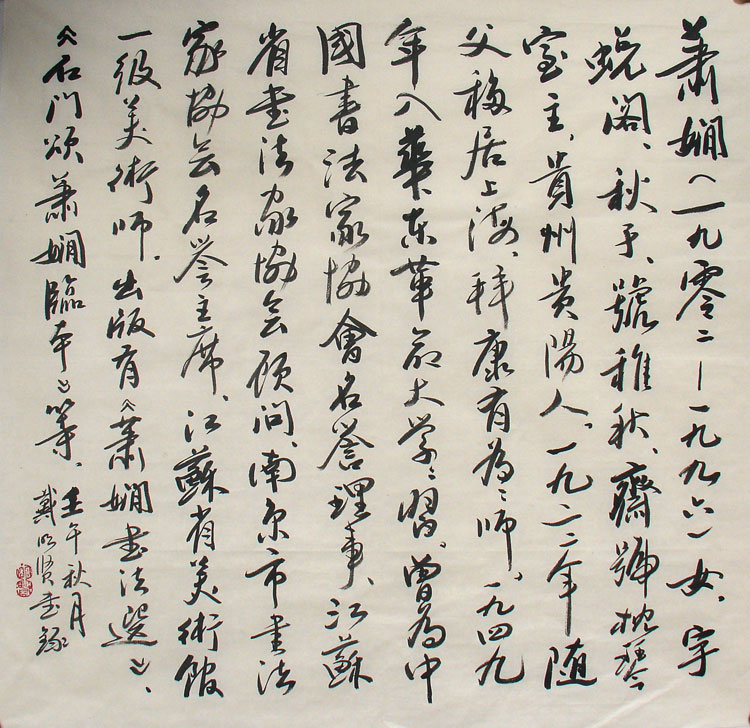 蕭嫻（一九零二—一九九六）女、字
蜕閣、秋予、號稚秋、齋號枕琴
室主、貴州贵陽人、一九二二年随
父移居上海、拜康有為為師、一九四九
年入華东革命大学学習、曾為中
國書法家協會名誉理事、江蘇
省书法家協会顾问、南京市書法
家協会名誉主席、江蘇省美術館
一级美術师、出版有《萧嫻书法選》、
《石门颂萧嫻臨本》等、
壬午秋月
戴明贤书錄